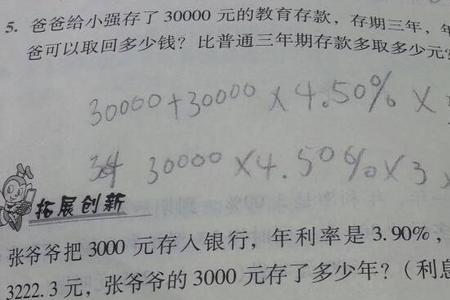 5. 爸爸给小强存了 30000 元的教育存款，存期三年，
爸可以取回多少钱？比普通三年期存款多取多少元
30000+30000×4.50%×
30000×4.50%×3
拓展创新
张爷爷把 3000 元存入银行，年利率是 3.90%，
3222.3 元，张爷爷的 3000 元存了多少年？（利息